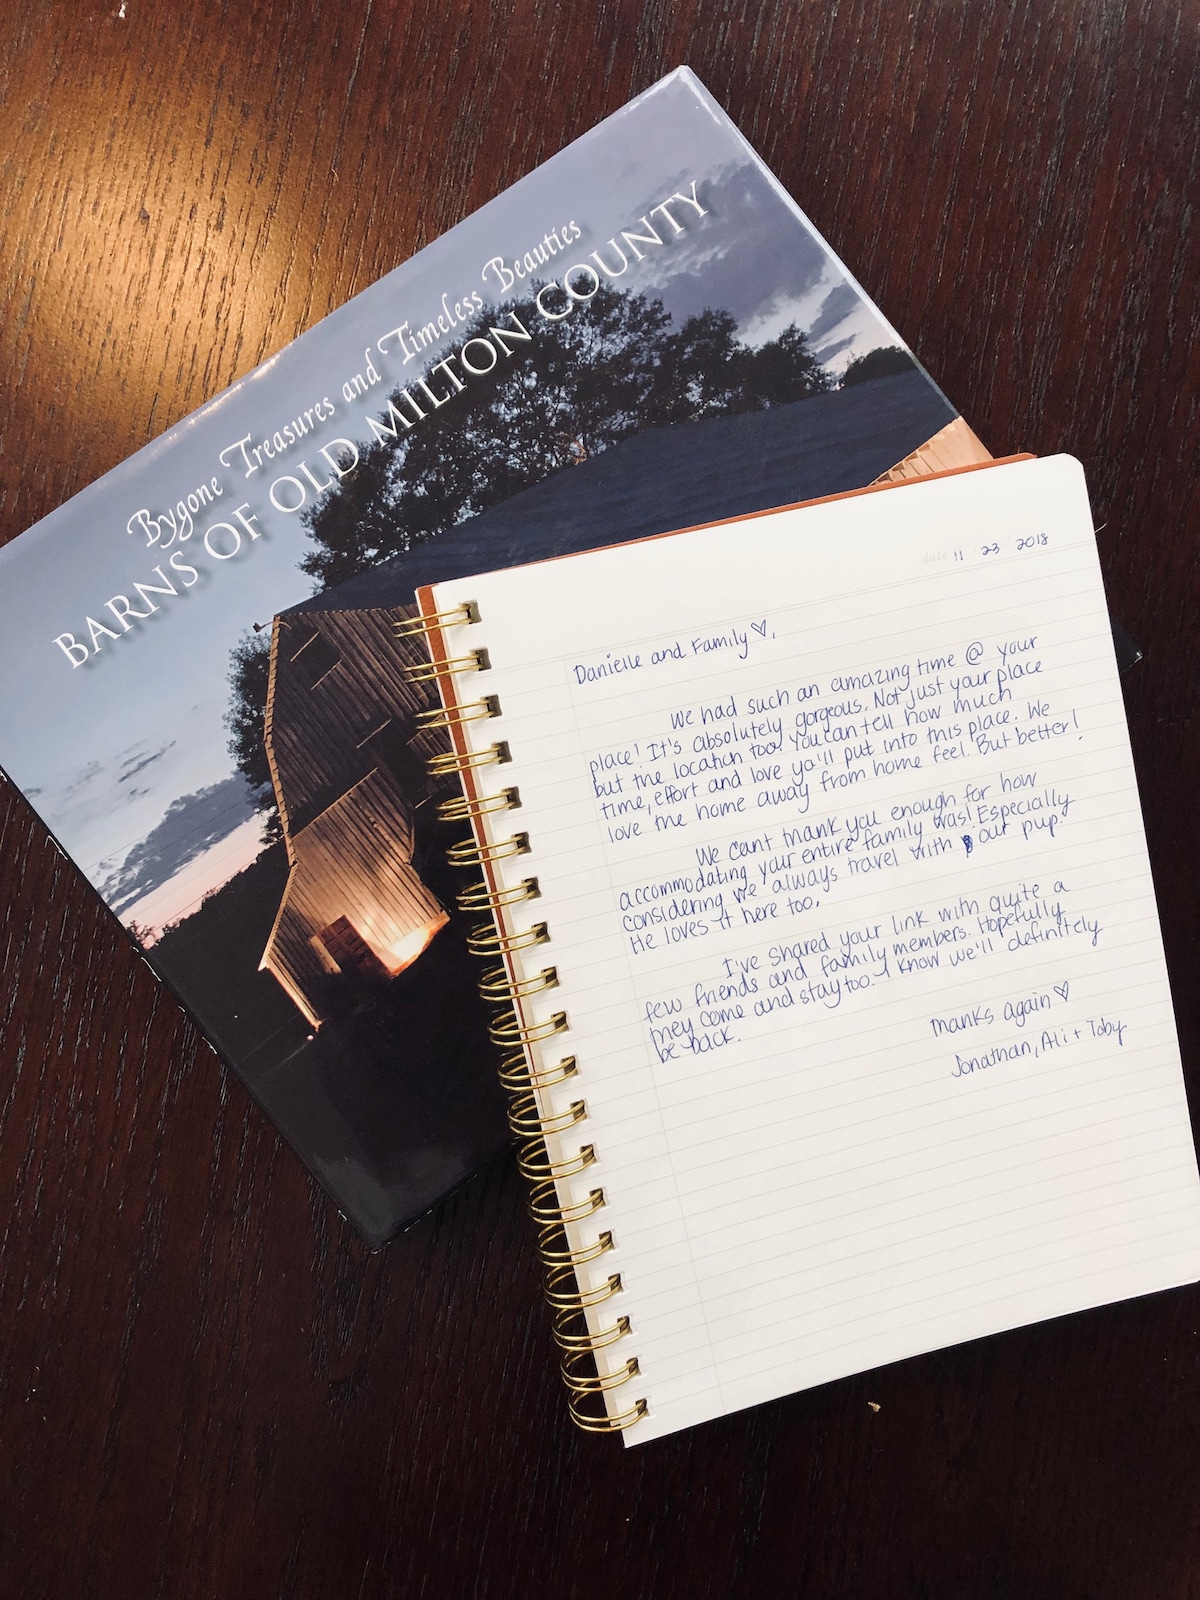 Bygone Treasures and Timeless Beauties
BARNS OF OLD MILTON COUNTY
date 11 / 23 / 2018
Danielle and Family ♡,
We had such an amazing time @ your
place! It's absolutely gorgeous. Not just your place
but the location too. You can tell how much
time, effort and love ya'll put into this place. We
love the home away from home feel. But better!
We can't thank you enough for how
accommodating your entire family was! Especially
considering we always travel with our pup!
He loves it here too.
I've shared your link with quite a
few friends and family members. Hopefully
they come and stay too. I know we'll definitely
be back.
Thanks again ♡
Jonathan, Ali + Toby